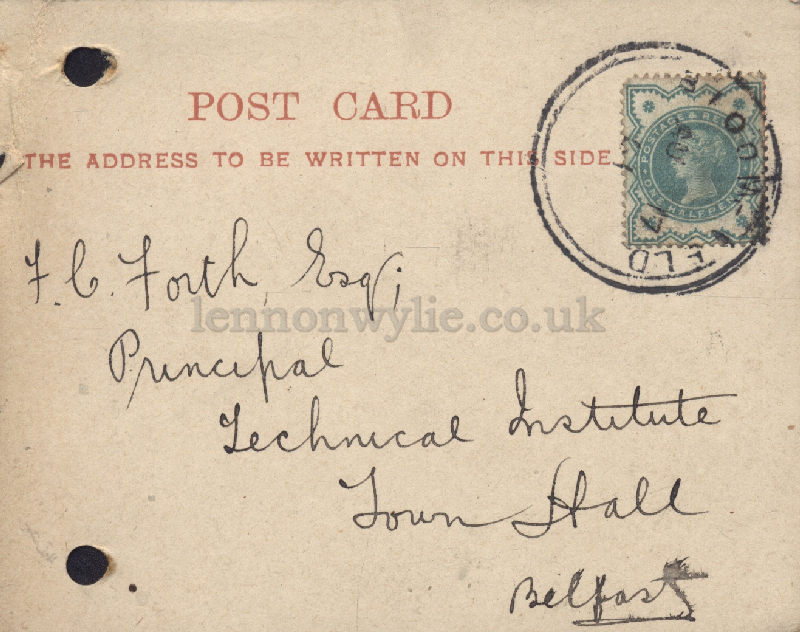 POST CARD
THE ADDRESS TO BE WRITTEN ON THIS SIDE
POSTAGE & RE
ONE HALF PENNY
F. C. Forth, Esq;
lennonwylie.co.uk
Principal
Technical Institute
Town Hall
Belfast